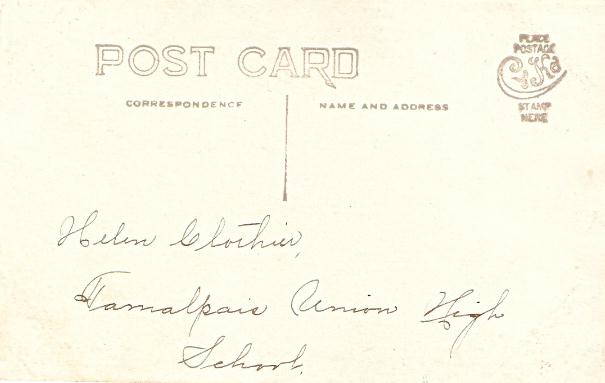 POST CARD
CORRESPONDENCE
NAME AND ADDRESS
PLACE
POSTAGE
STAMP
HERE
Helen Clothier,
Tamalpais Union High
School.